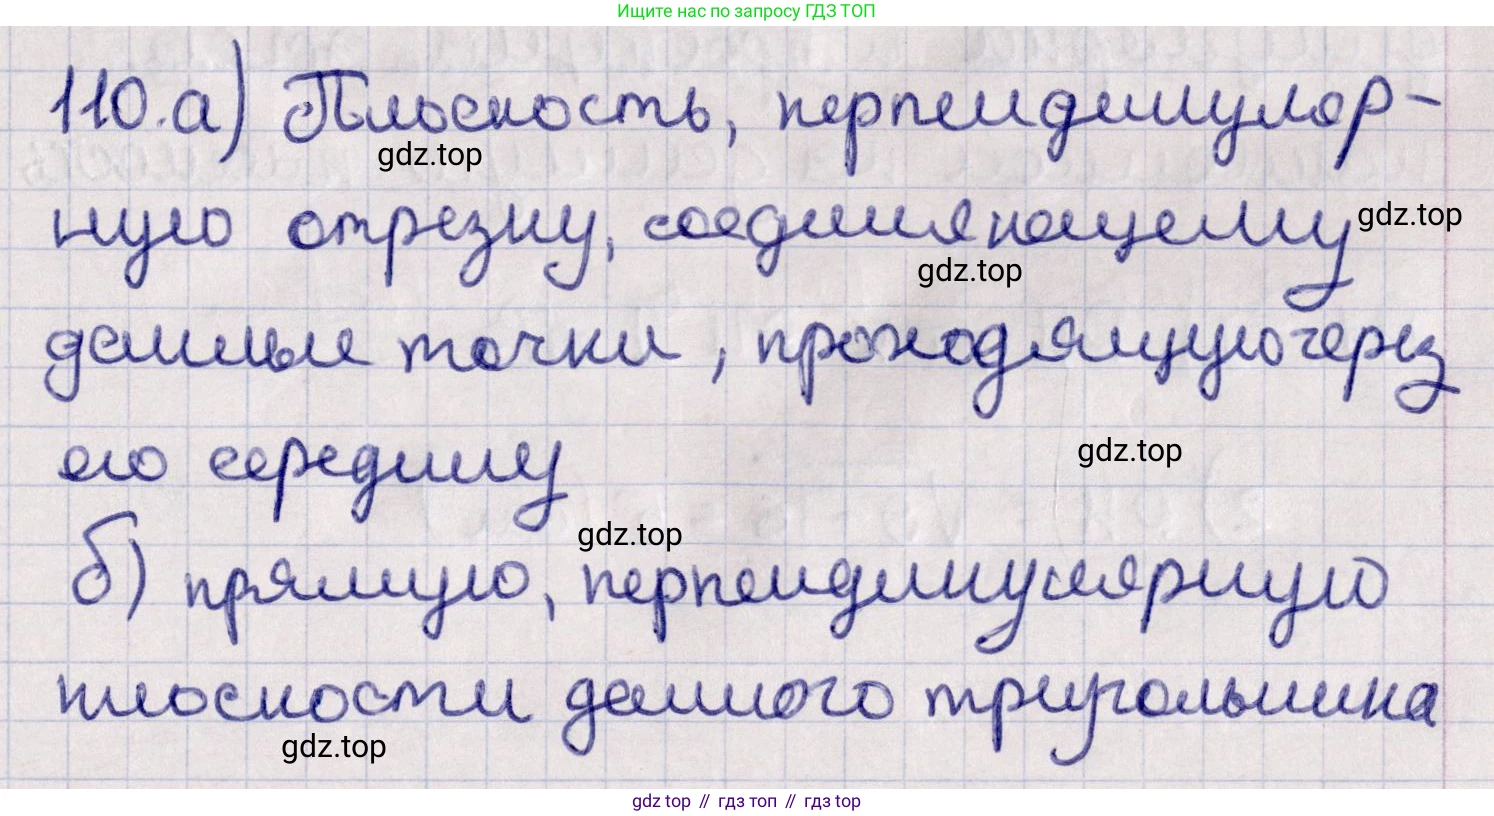 Ищите нас по запросу ГДЗ ТОП
110.а) Плоскость, перпендикуляр-
gdz.top
ную отрезку, соединяющему
gdz.top
gdz.top
данные точки, проходящую через
его середину
gdz.top
gdz.top
б) прямую, перпендикулярную
плоскости данного треугольника
gdz.top
gdz top // гдз топ // гдз top